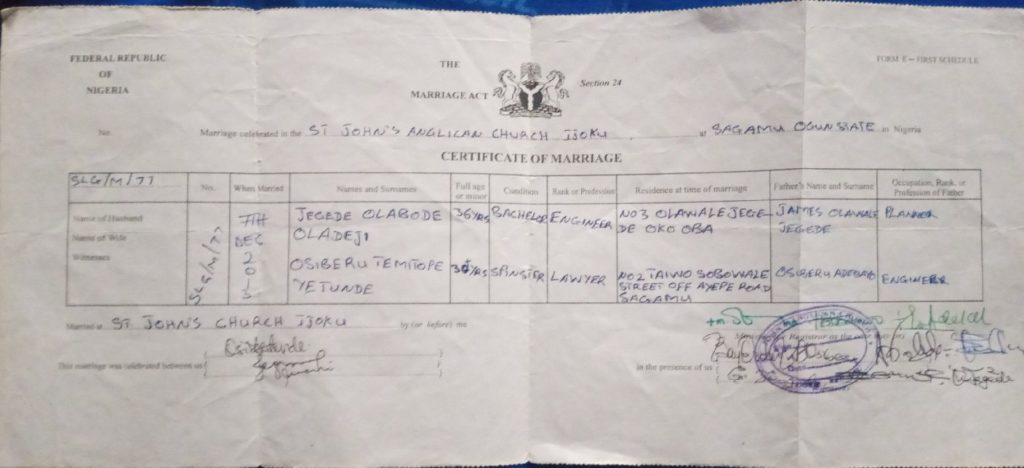 FEDERAL REPUBLIC
OF
NIGERIA
THE
MARRIAGE ACT
Section 24
FORM E — FIRST SCHEDULE
No. Marriage celebrated in the ST JOHN'S ANGLICAN CHURCH IJOKU at SAGAMU OGUN STATE in Nigeria
CERTIFICATE OF MARRIAGE
SLG/M/77 No. When Married Names and Surnames Full age or minor Condition Rank or Profession Residence at time of marriage Father's Name and Surname Occupation, Rank, or Profession of Father
Name of Husband
Name of Wife
Witnesses
SLG/M/77
7TH
DEC
2
0
1
JEGEDE OLABODE
OLADEJI
36YRS BACHELOR ENGINEER
NO 3 OLAWALE JEGE
DE OKO OBA
JAMES OLAWALE
JEGEDE
PLANNER
OSIBERU TEMITOPE
YETUNDE
SPINSTER LAWYER
NO 2 TAIWO SOBOWALE
STREET OFF AYEPE ROAD
SAGAMU
OSIBERU ADEBAYO
ENGINEER
Married at ST JOHN'S CHURCH IJOKU by (or before) me
Registrar as the
This marriage was celebrated between us
in the presence of us